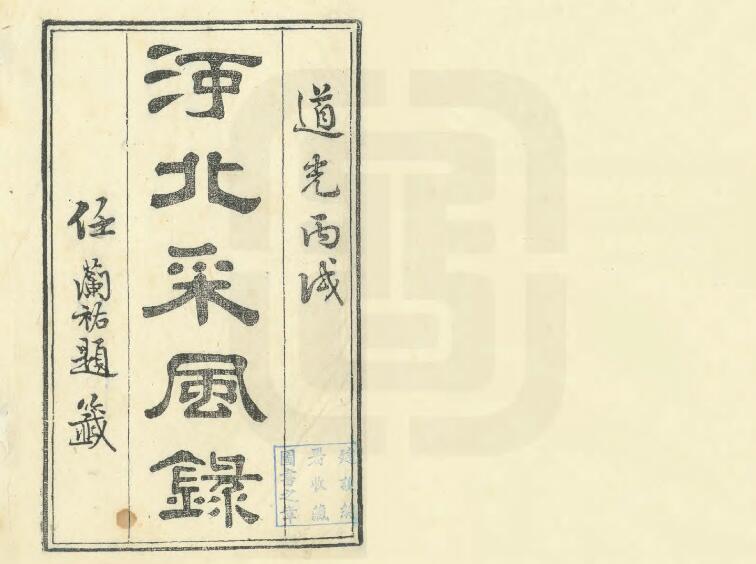 道光丙戌
河北采風錄
任蘭祐題籤
圖書之章